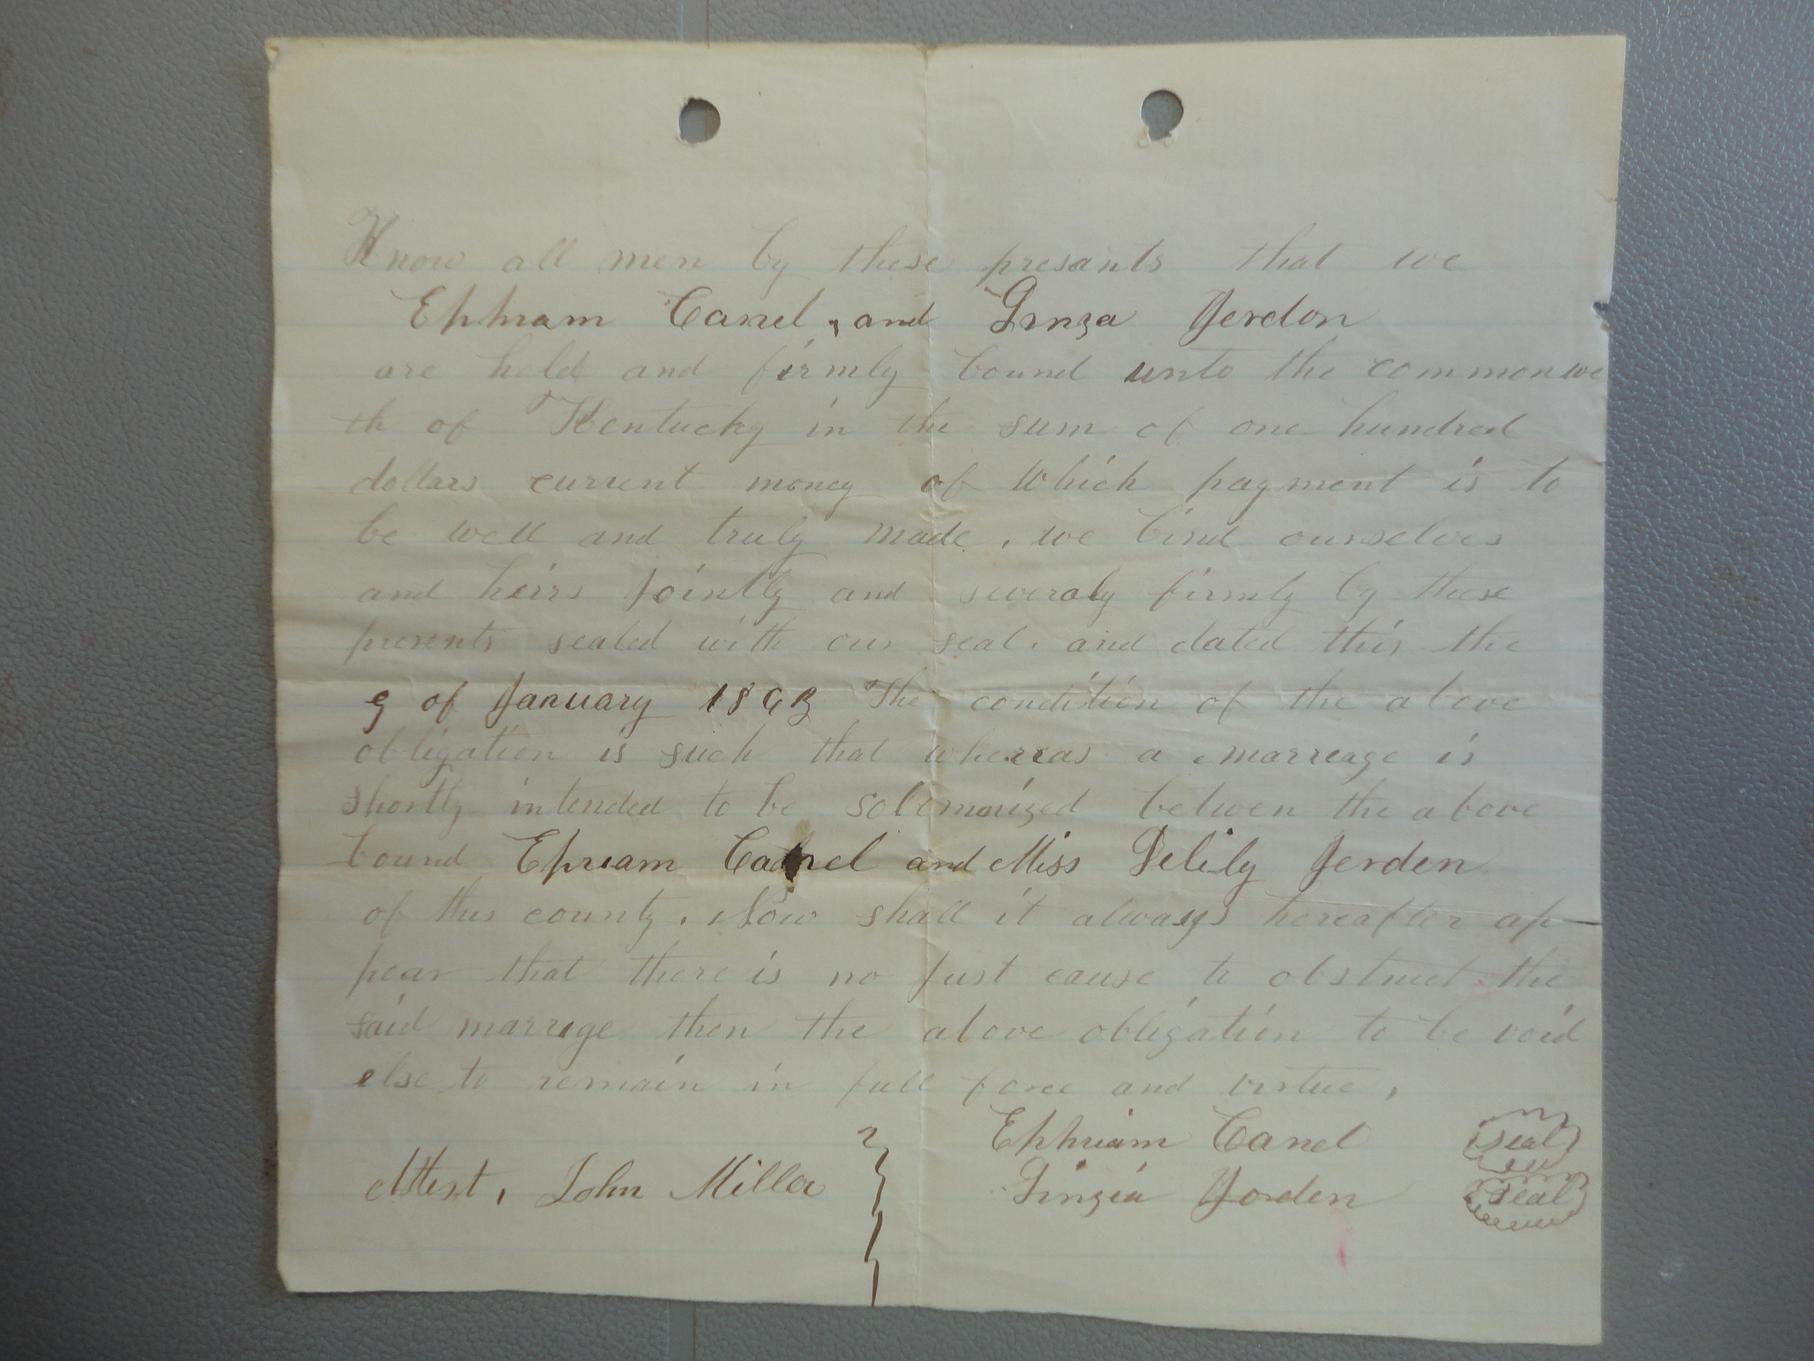 Know all men by these presants that we
Ephram Canel, and Linza Jerdon
are held and firmly bound unto the commonwe
th of Kentucky in the sum of one hundred
dollars current money of Which payment is to
be well and truly made, we bind ourselves
and heirs jointly and severaly firmly by these
presents sealed with our seal. and dated this the
9 of January The condition of the above
obligation is such that whereas a marreage is
shortly intended to be solomnized betwen the above
bound Epream and Miss Jerden
of this county. Now shall it always hereafter ap-
pear that there is no just cause to obstruct the
said marrige then the above obligation to be void
else to remain in full force and virtue,
Ephriam Canel seal
Attest, John Miller Linzia Jorden seal